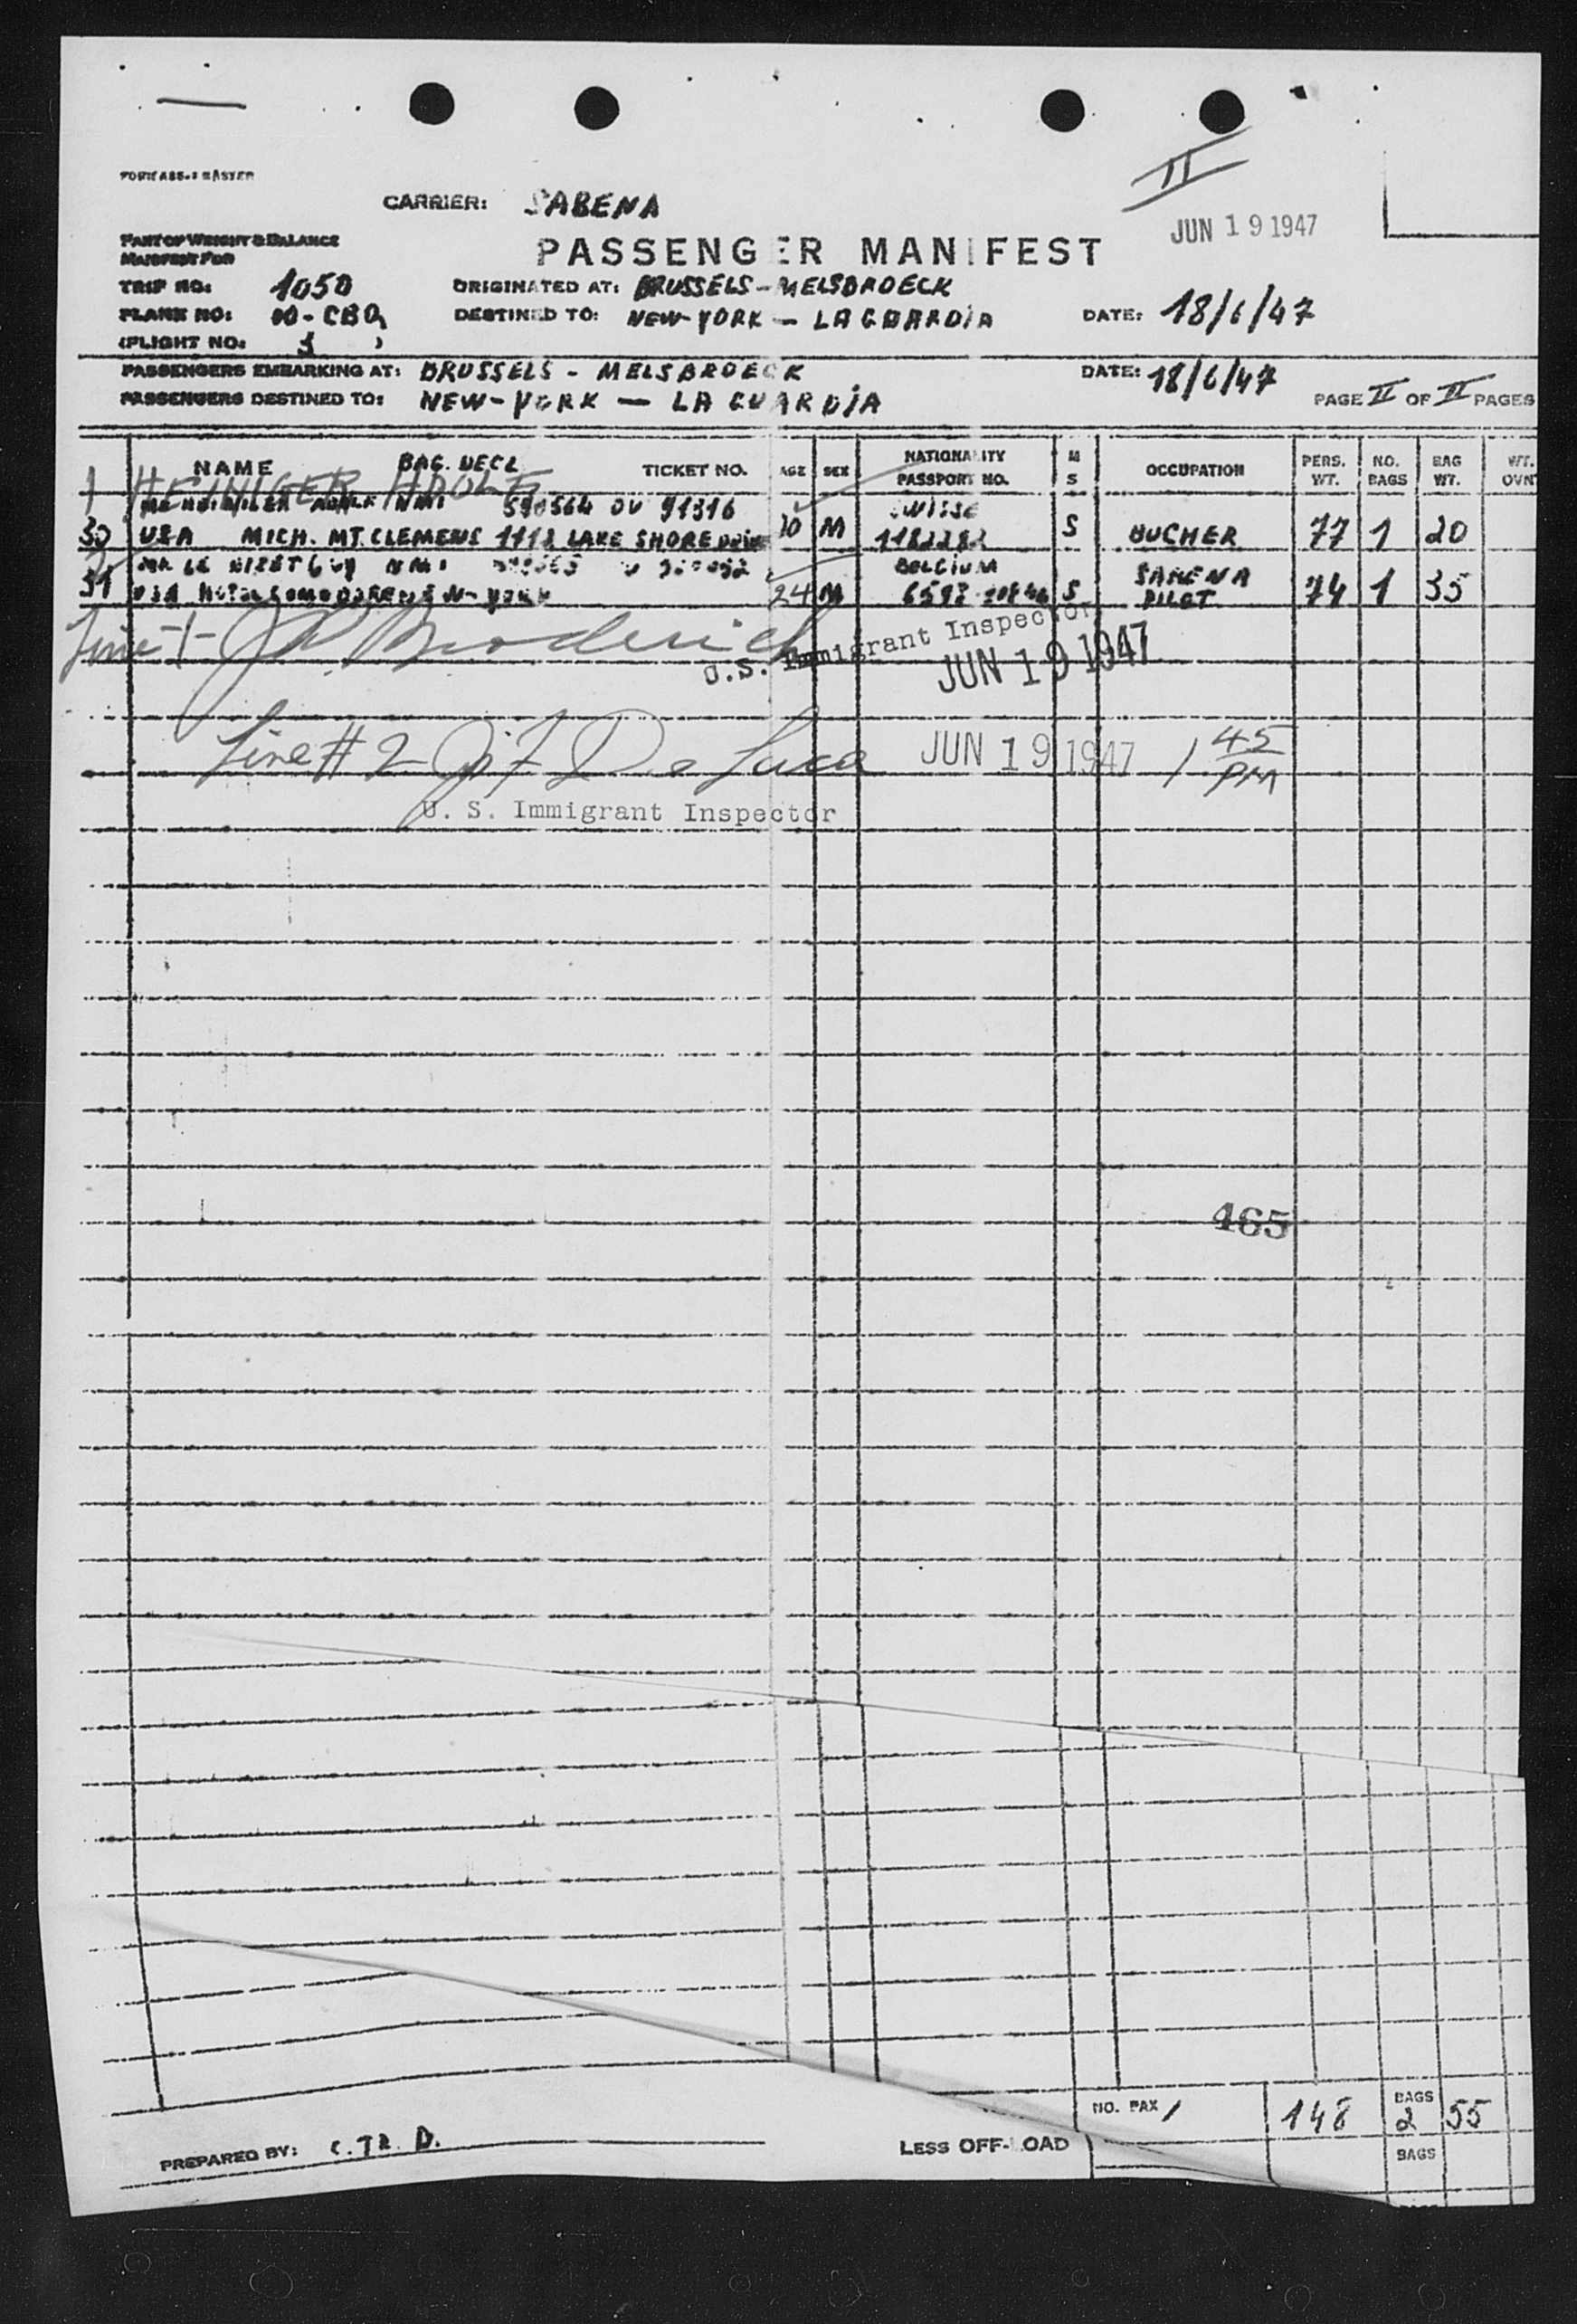 II
CARRIER: SABENA
JUN 19 1947
PART OF WEIGHT & BALANCE
MANIFEST FOR
PASSENGER MANIFEST
TRIP NO: 1050
ORIGINATED AT: BRUSSELS - MELSBROECK
PLANE NO: OO-CBQ
DESTINED TO: NEW-YORK - LA GUARDIA
DATE: 18/6/47
(FLIGHT NO: )
PASSENGERS EMBARKING AT: BRUSSELS - MELSBROECK
DATE: 18/6/47
PASSENGERS DESTINED TO: NEW-YORK - LA GUARDIA
PAGE II OF II PAGES
NAME BAG. DECL TICKET NO. AGE SEX NATIONALITY PASSPORT NO. M S OCCUPATION PERS. WT. NO. BAGS BAG WT. WT. OVN
1 HEINIGER ADOLF
590564 OU 91316 SWISSE
30 USA MICH. MT. CLEMENS LAKE SHORE DRIVE M S BUCHER 77 1 20
MR LE GUY NMI BELGIUM SABENA
31 USA HOTEL COMODORE NEW-YORK 24 M S PILOT 74 1 35
Line 1 Broderick
U.S. Immigrant Inspector
JUN 19 1947
Line # 2 De Luca JUN 19 1947 1 45 PM
U. S. Immigrant Inspector
465
NO. PAX 148 BAGS 2 55
PREPARED BY:
LESS OFF-LOAD
BAGS